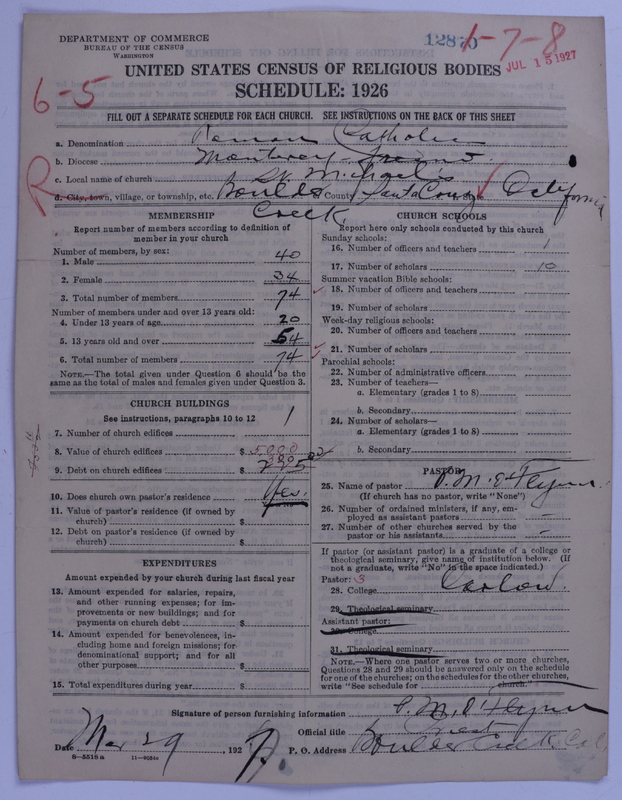 DEPARTMENT OF COMMERCE
BUREAU OF THE CENSUS
WASHINGTON
1-7-8
JUL 15 1927
6-5
UNITED STATES CENSUS OF RELIGIOUS BODIES
SCHEDULE: 1926
FILL OUT A SEPARATE SCHEDULE FOR EACH CHURCH. SEE INSTRUCTIONS ON THE BACK OF THIS SHEET
a. Denomination Roman Catholic
b. Diocese Monterey-Fresno
c. Local name of church St. Michael's
R
d. City, town, village, or township, etc. Boulder Creek County Santa Cruz State California
MEMBERSHIP
Report number of members according to definition of
member in your church
Number of members, by sex:
1. Male 40
2. Female 34
3. Total number of members 74
Number of members under and over 13 years old:
4. Under 13 years of age 20
5. 13 years old and over 54
6. Total number of members 74
NOTE.—The total given under Question 6 should be the
same as the total of males and females given under Question 3.
CHURCH BUILDINGS
See instructions, paragraphs 10 to 12
7. Number of church edifices 1
8. Value of church edifices $ 5000
9. Debt on church edifices $
10. Does church own pastor's residence Yes.
11. Value of pastor's residence (if owned by
church) $
12. Debt on pastor's residence (if owned by
church) $
EXPENDITURES
Amount expended by your church during last fiscal year
13. Amount expended for salaries, repairs,
and other running expenses; for im-
provements or new buildings; and for
payments on church debt $
14. Amount expended for benevolences, in-
cluding home and foreign missions; for
denominational support; and for all
other purposes $
15. Total expenditures during year $
CHURCH SCHOOLS
Report here only schools conducted by this church
Sunday schools:
16. Number of officers and teachers 1
17. Number of scholars 10
Summer vacation Bible schools:
18. Number of officers and teachers
19. Number of scholars
Week-day religious schools:
20. Number of officers and teachers
21. Number of scholars
Parochial schools:
22. Number of administrative officers
23. Number of teachers—
a. Elementary (grades 1 to 8)
b. Secondary
24. Number of scholars—
a. Elementary (grades 1 to 8)
b. Secondary
PASTOR
25. Name of pastor P. M. O'Flynn.
(If church has no pastor, write "None")
26. Number of ordained ministers, if any, em-
ployed as assistant pastors –
27. Number of other churches served by the
pastor or his assistants –
If pastor (or assistant pastor) is a graduate of a college or
theological seminary, give name of institution below. (If
not a graduate, write "No" in the space indicated.)
Pastor: 3
28. College Carlow.
29. Theological seminary
Assistant pastor:
30. College
31. Theological seminary
NOTE.—Where one pastor serves two or more churches,
Questions 28 and 29 should be answered only on the schedule
for one of the churches; on the schedules for the other churches,
write "See schedule for church."
Signature of person furnishing information P. M. O'Flynn
Official title Priest
Date Mar 29, 1927. P. O. Address Boulder Creek, Cal
8—5518 a